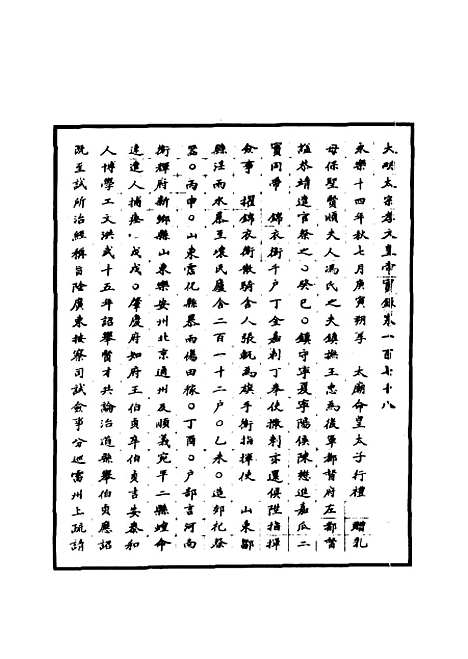 大明太宗孝文皇帝實錄卷一百七十八
永樂十四年秋七月庚寅朔享　太廟命皇太子行禮　贈乳
母保聖賢順夫人馮氏之夫鎮撫王忠為後軍都督府左都督
謚恭靖遣官祭之○癸巳○鎮守寧夏寧陽侯陳懋進嘉瓜二
實同帶　錦衣衛千戶丁全嘉剌丁奉使撒剌亦還俱陞指揮
僉事　擢錦衣衛散騎舍人張軏為旗手衛指揮使　山東鄒
縣淫雨水暴至壞民廬舍二百一十二戶○乙未○造郊祀祭
器○丙申○山東霑化縣暴雨傷田稼○丁酉○戶部言河南
衛輝府新鄉縣山東樂安州北京通州及順義宛平二縣蝗命
速遣人捕瘞○戊戌○肇慶府知府王伯貞卒伯貞吉安泰和
人博學工文洪武十五年詔舉賢才共論治道縣舉伯貞應詔
既至試所治經稱旨除廣東按察司試僉事分巡雷州上疏請